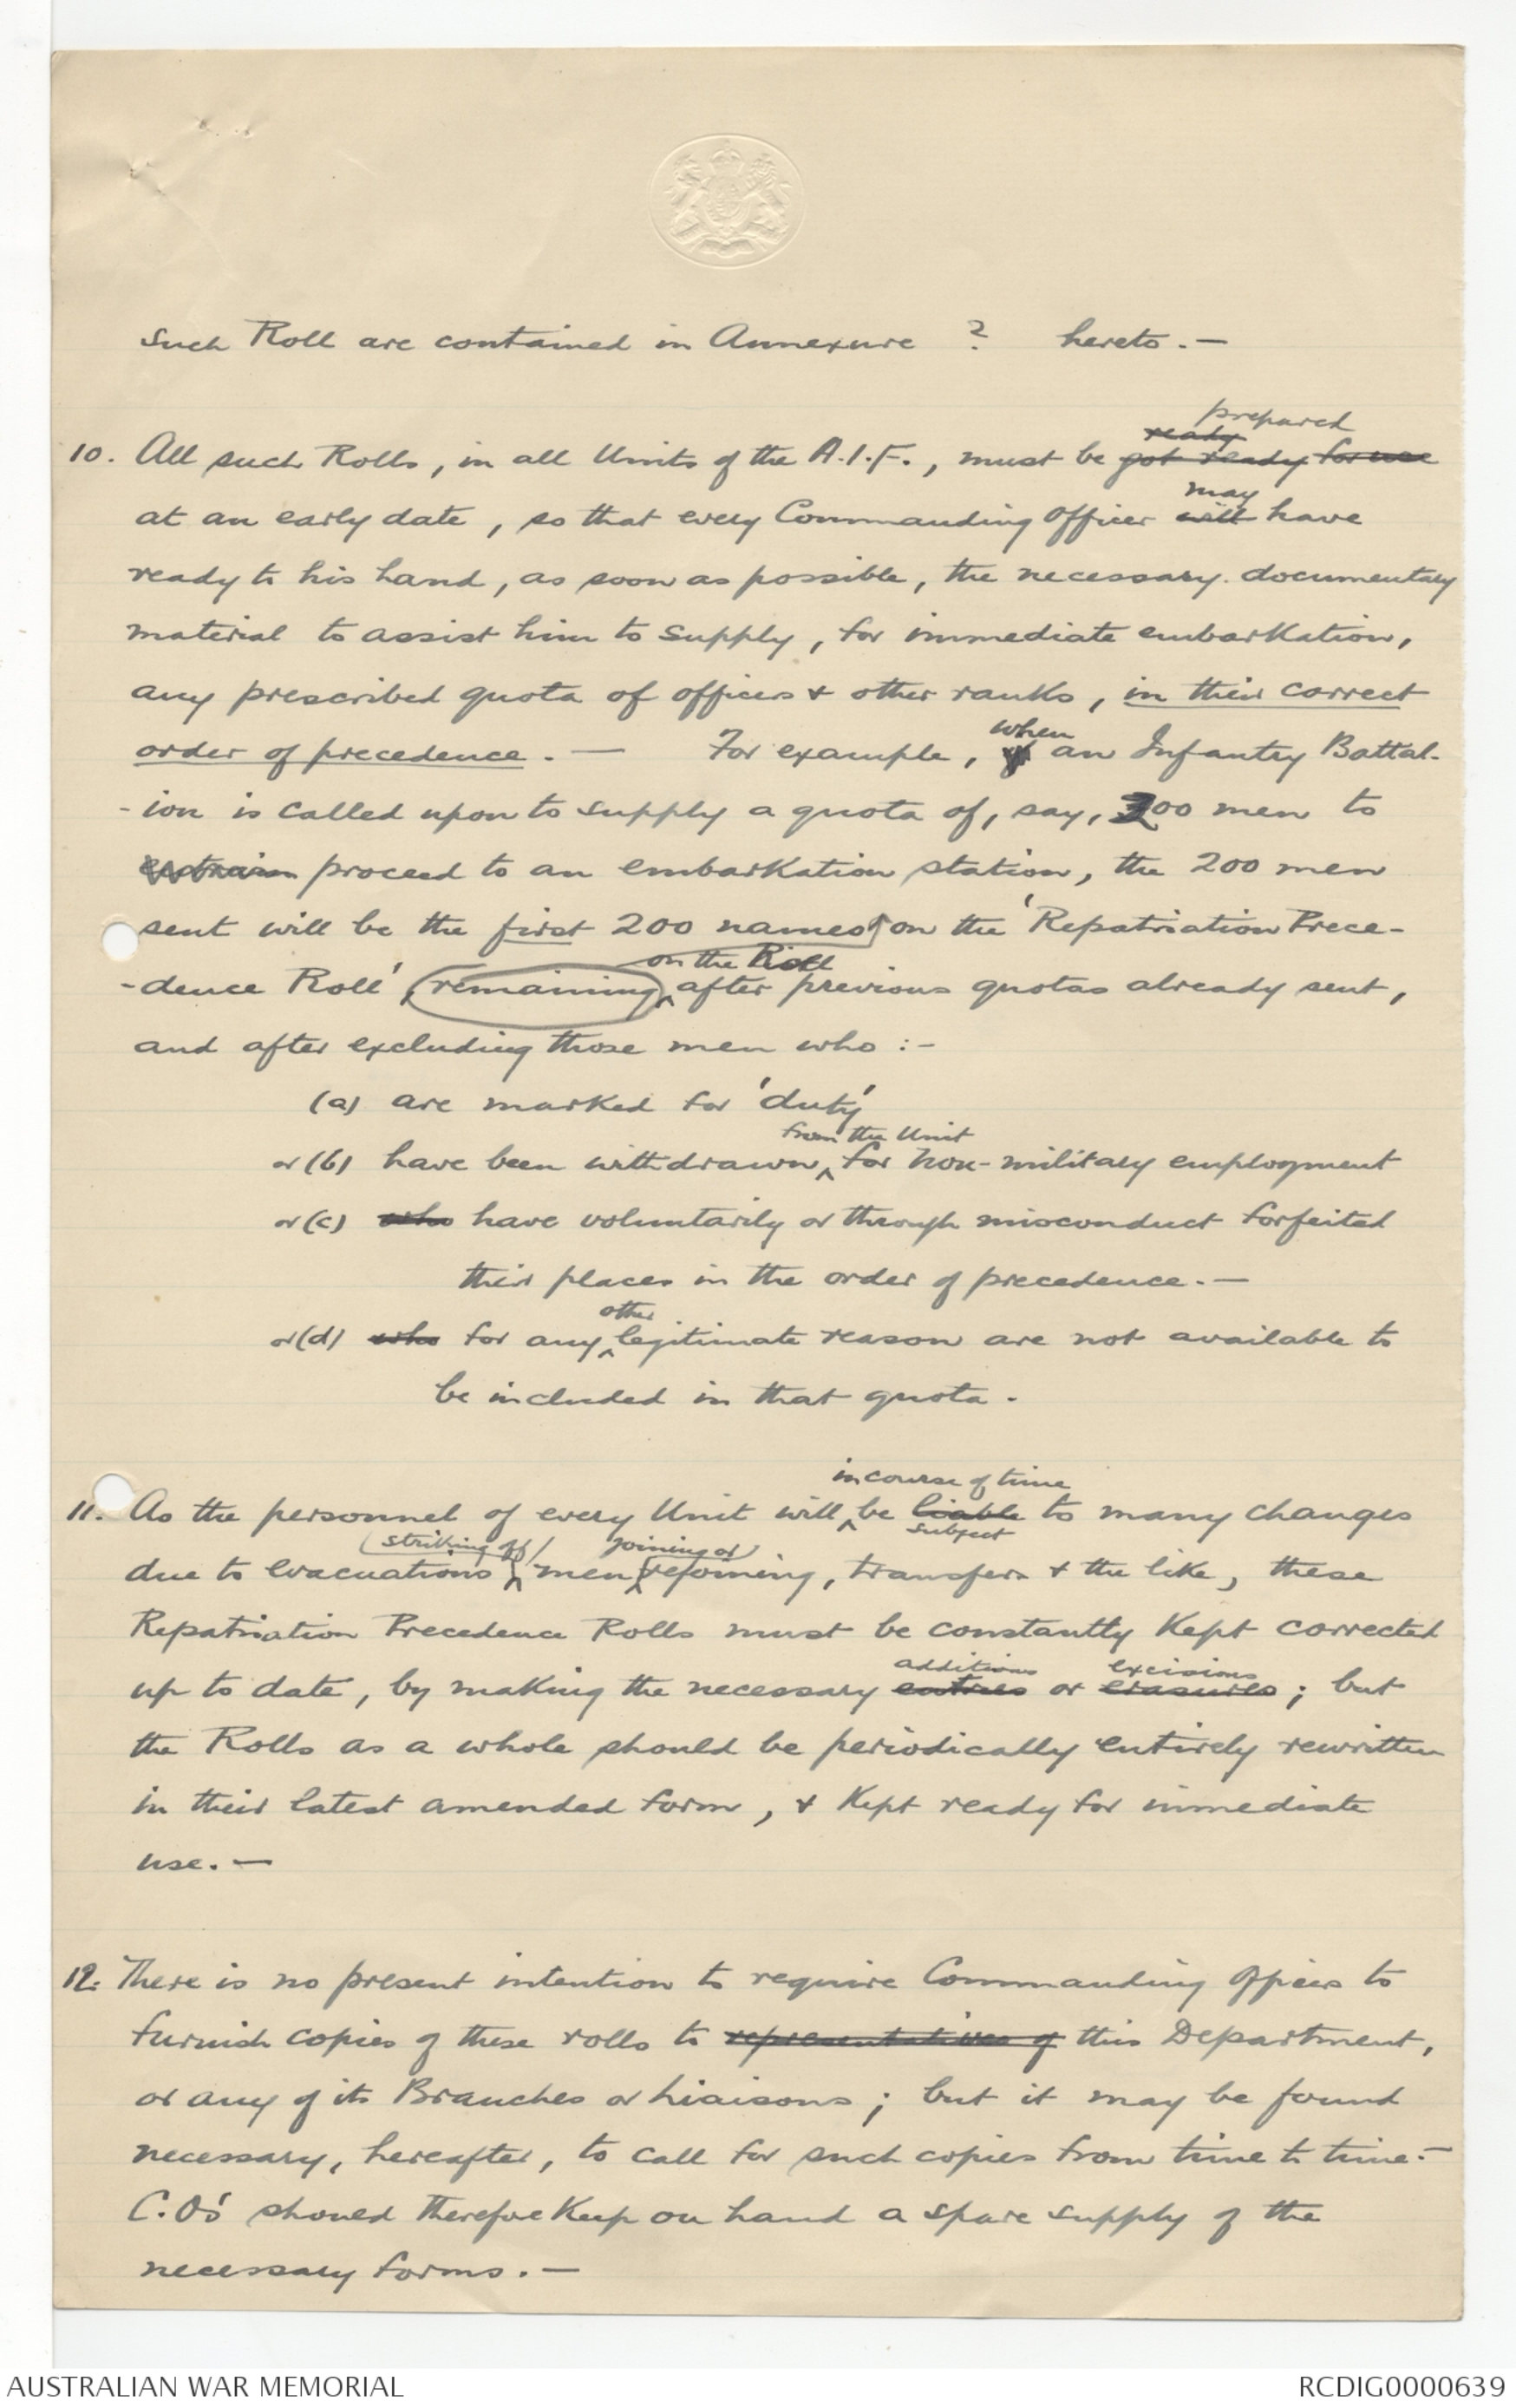 such Roll are contained in Annexure ? hereto. —
prepared
ready
10. All such Rolls, in all Units of the A.I.F., must be got ready for use
may
at an early date, so that every Commanding Officer will have
ready to his hand, as soon as possible, the necessary documentary
material to assist him to supply, for immediate embarkation,
any prescribed quota of officers & other ranks, in their correct
order of precedence. — For example, when an Infantry Battal-
-ion is called upon to supply a quota of, say, 200 men to
entrain proceed to an embarkation station, the 200 men
sent will be the first 200 names on the 'Repatriation Prece-
on the Roll
-dence Roll' remaining after previous quotas already sent,
and after excluding those men who :-
(a) are marked for 'duty'
from the Unit
or (b) have been withdrawn for non-military employment
or (c) who have voluntarily or through misconduct forfeited
their places in the order of precedence. —
other
or (d) who for any legitimate reason are not available to
be included in that quota.
in course of time
11. As the personnel of every Unit will be liable to many changes
subject
striking off joining or
due to evacuations men rejoining, transfers & the like, these
Repatriation Precedence Rolls must be constantly kept corrected
additions excisions
up to date, by making the necessary entries or erasures; but
the Rolls as a whole should be periodically entirely rewritten
in their latest amended form, & kept ready for immediate
use. —
12. There is no present intention to require Commanding Officers to
furnish copies of these rolls to representatives of this Department,
or any of its Branches or Liaisons; but it may be found
necessary, hereafter, to call for such copies from time to time. —
C.O's should therefore keep on hand a spare supply of the
necessary forms. —
AUSTRALIAN WAR MEMORIAL
RCDIG0000639